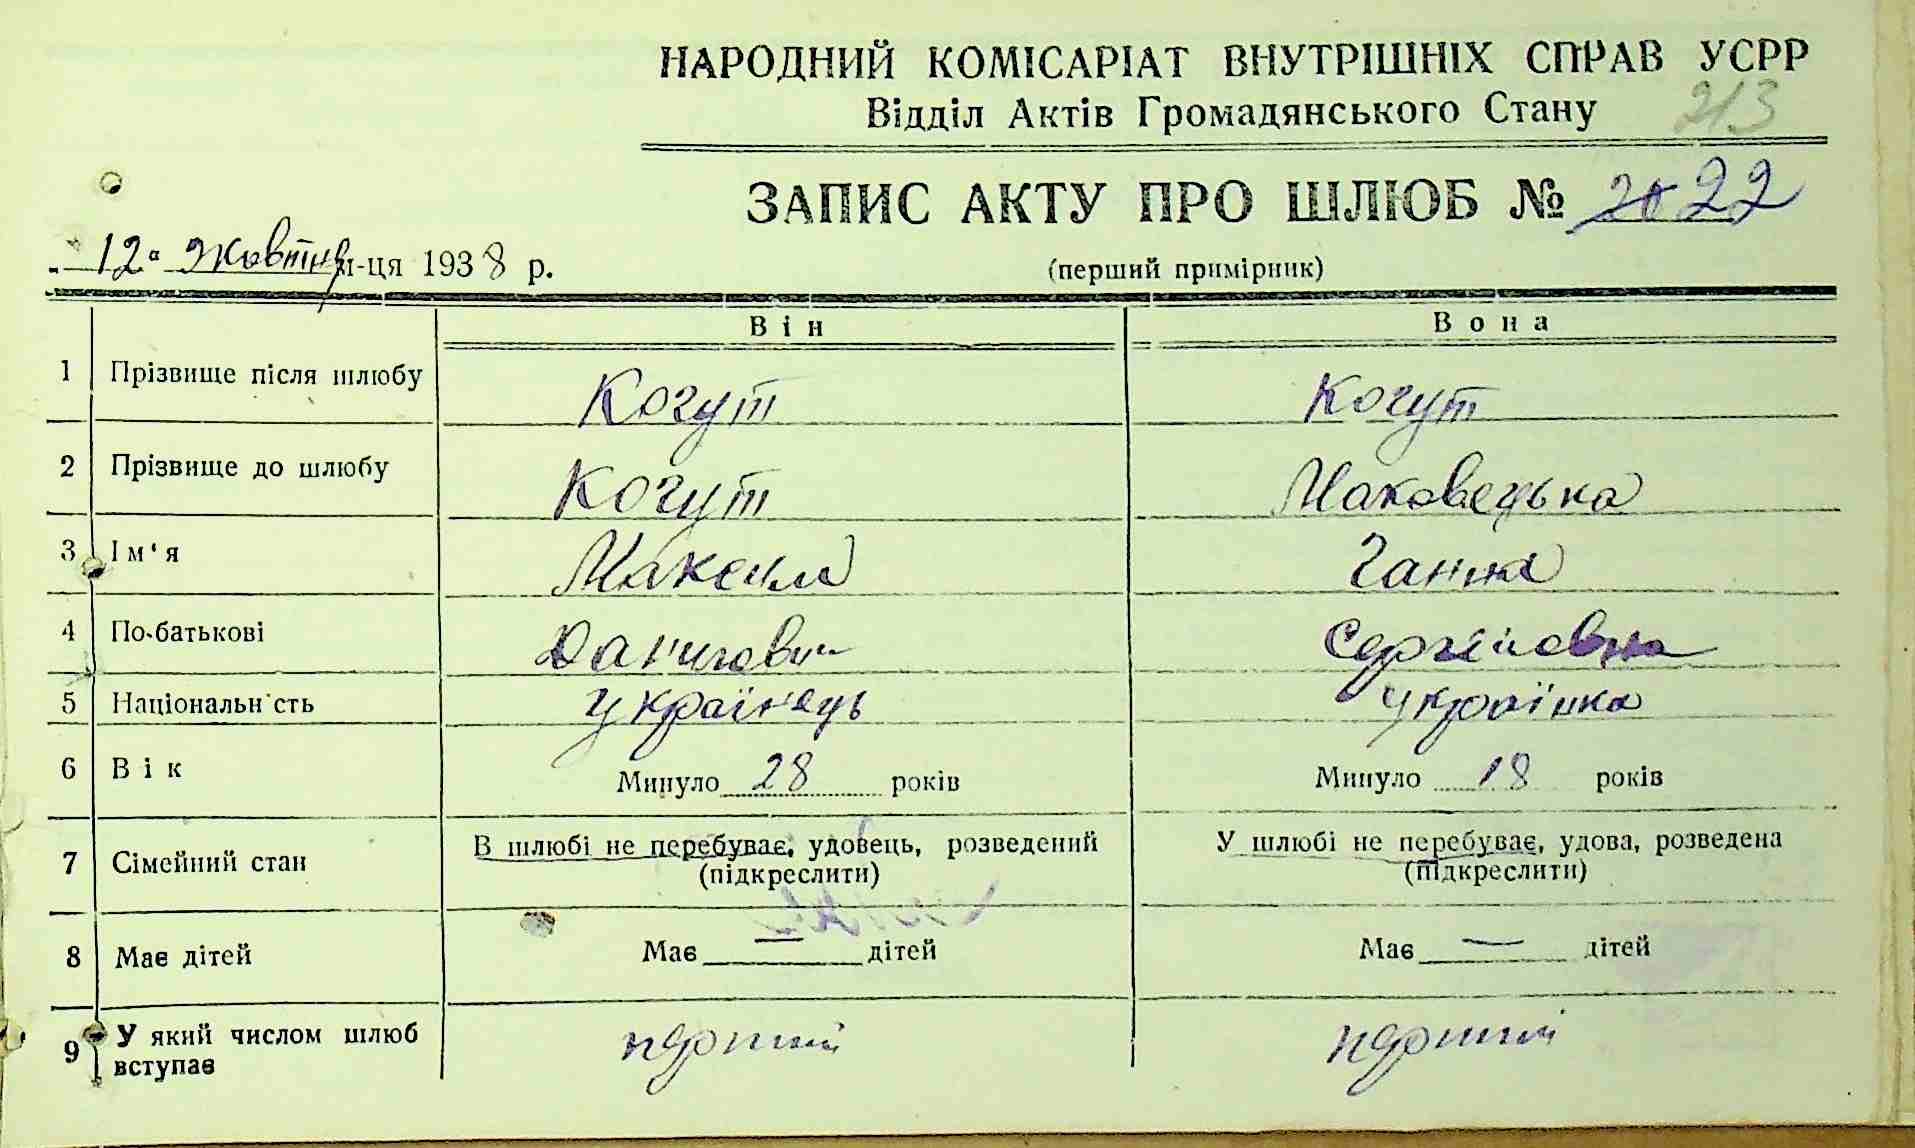 НАРОДНИЙ КОМІСАРІАТ ВНУТРІШНІХ СПРАВ УСРР
Відділ Актів Громадянського Стану 213
ЗАПИС АКТУ ПРО ШЛЮБ № 2022
„12“ Жовтня м-ця 1938 р.
(перший примірник)
Він Вона
1 Прізвище після шлюбу Когут Когут
2 Прізвище до шлюбу Когут Маковецька
3 Ім‘я Максим Ганна
4 По-батькові Данилович Сергіївна
5 Національність українець українка
6 Вік Минуло 28 років Минуло 18 років
7 Сімейний стан В шлюбі не перебуває, удовець, розведений У шлюбі не перебуває, удова, розведена
(підкреслити) (підкреслити)
8 Має дітей Має — дітей Має — дітей
9 У який числом шлюб вступає перший перший